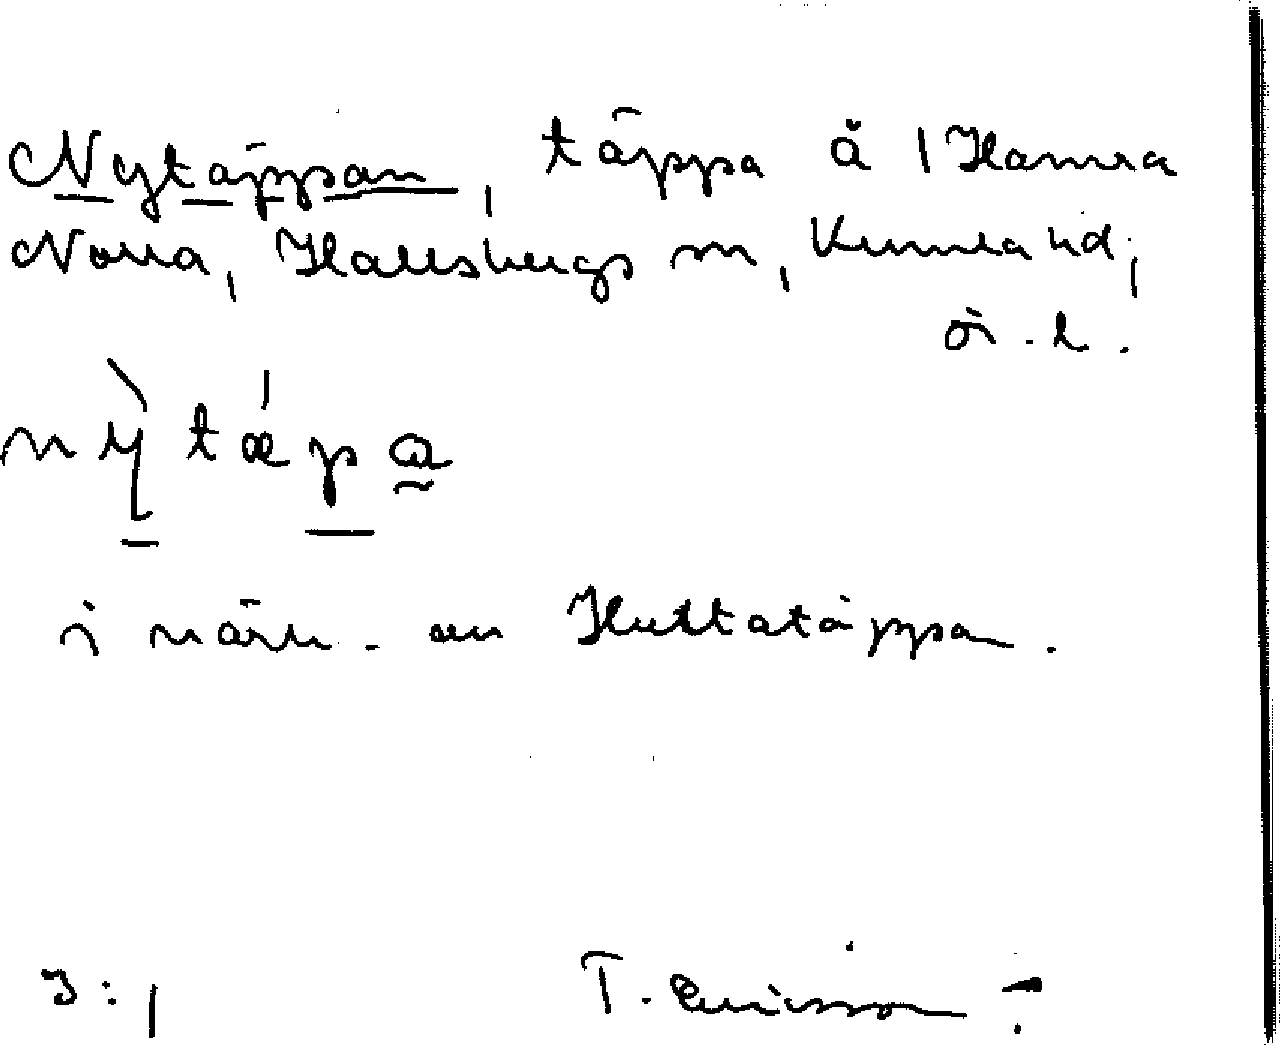 Nytäppan, täppa å 1 Hamra
Norra, Hallsbergs sn, Kumla hd,
ö. l.
nỳtǽpa
i närh. av Huttatäppan.
J: 1
T. Ericsson